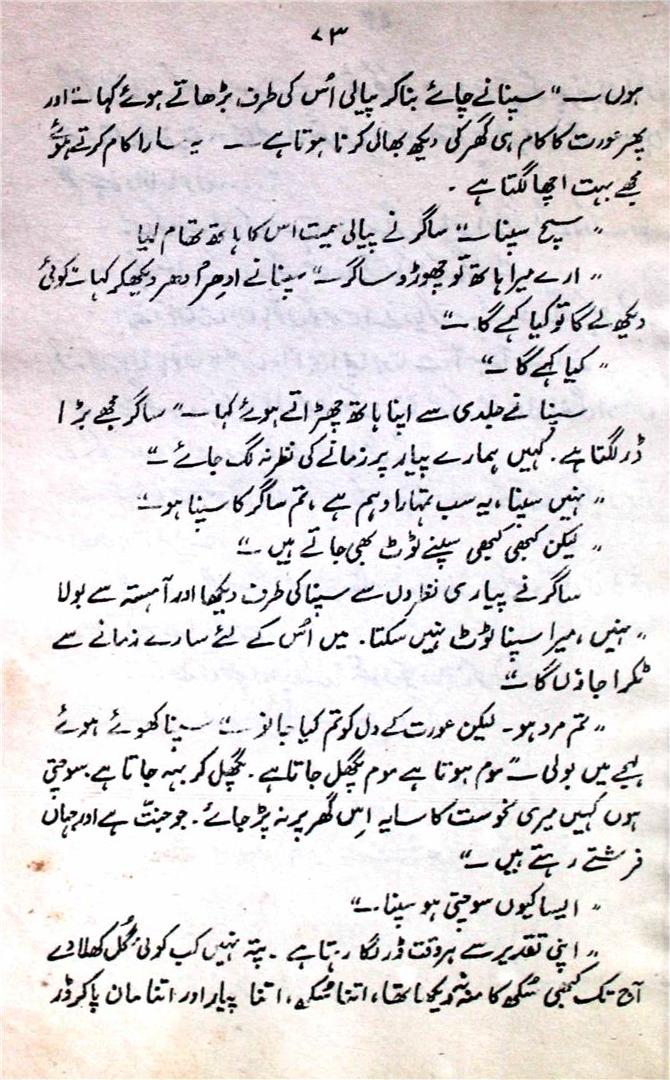 ۷۳
ہوں ــ“ سپنا نے چائے بنا کر پیالی اُس کی طرف بڑھاتے ہوئے کہا ”اور
پھر عورت کا کام ہی گھر کی دیکھ بھال کرنا ہوتا ہے ــ یہ سارا کام کرتے ہوئے
مجھے بہت اچھا لگتا ہے ۔
”سچ سپنا ــ“ ساگر نے پیالی سمیت اس کا ہاتھ تھام لیا
”ارے میرا ہاتھ تو چھوڑو ساگر ــ“ سپنا نے ادھر اُدھر دیکھکر کہا ”کوئی
دیکھ لے گا تو کیا کہے گا ــ“
”کیا کہے گا ــ“
سپنا نے جلدی سے اپنا ہاتھ چھڑاتے ہوئے کہا ــ ”ساگر مجھے بڑا
ڈر لگتا ہے ۔ کہیں ہمارے پیار پر زمانے کی نظر نہ لگ جائے ــ“
”نہیں سپنا ، یہ سب تمہارا وہم ہے ، تم ساگر کا سپنا ہو ــ“
”لیکن کبھی کبھی سپنے ٹوٹ بھی جاتے ہیں ــ“
ساگر نے پیار ی نظروں سے سپنا کی طرف دیکھا اور آہستہ سے بولا
”نہیں ، میرا سپنا ٹوٹ نہیں سکتا ۔ میں اُس کے لئے سارے زمانے سے
ٹکرا جاؤں گا ــ“
”تم مرد ہو ۔ لیکن عورت کے دل کو تم کیا جانو ــ“ سپنا کھوئے ہوئے
لہجے میں بولی ــ ”موم ہوتا ہے موم پگھل جاتا ہے ۔ پگھل کر بہہ جاتا ہے ۔ سوچتی
ہوں کہیں میری نحوست کا سایہ اِس گھر پر نہ پڑ جائے ۔ جو جنّت ہے اور جہاں
فرشتے رہتے ہیں ــ“
”ایسا کیوں سوچتی ہو سپنا ــ“
”اپنی تقدیر سے ہر وقت ڈر لگا رہتا ہے ۔ پتہ نہیں کب کوئی گُل کھلا دے
آج تک کبھی سُکھ کا منہ نہ دیکھا تھا ، اتنا سُکھ ، اتنا پیار اور اتنا مان پا کر ڈر